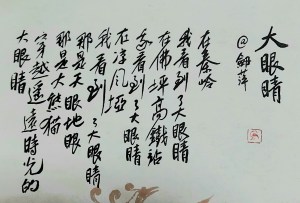 大眼睛
@劍萍
在秦岭
我看到了大眼睛
在佛坪高鐵站
我看到了大眼睛
在凉风埡
我看到了大眼睛
那是天眼地眼
那是大熊猫
穿越遥遠時光的
大眼睛